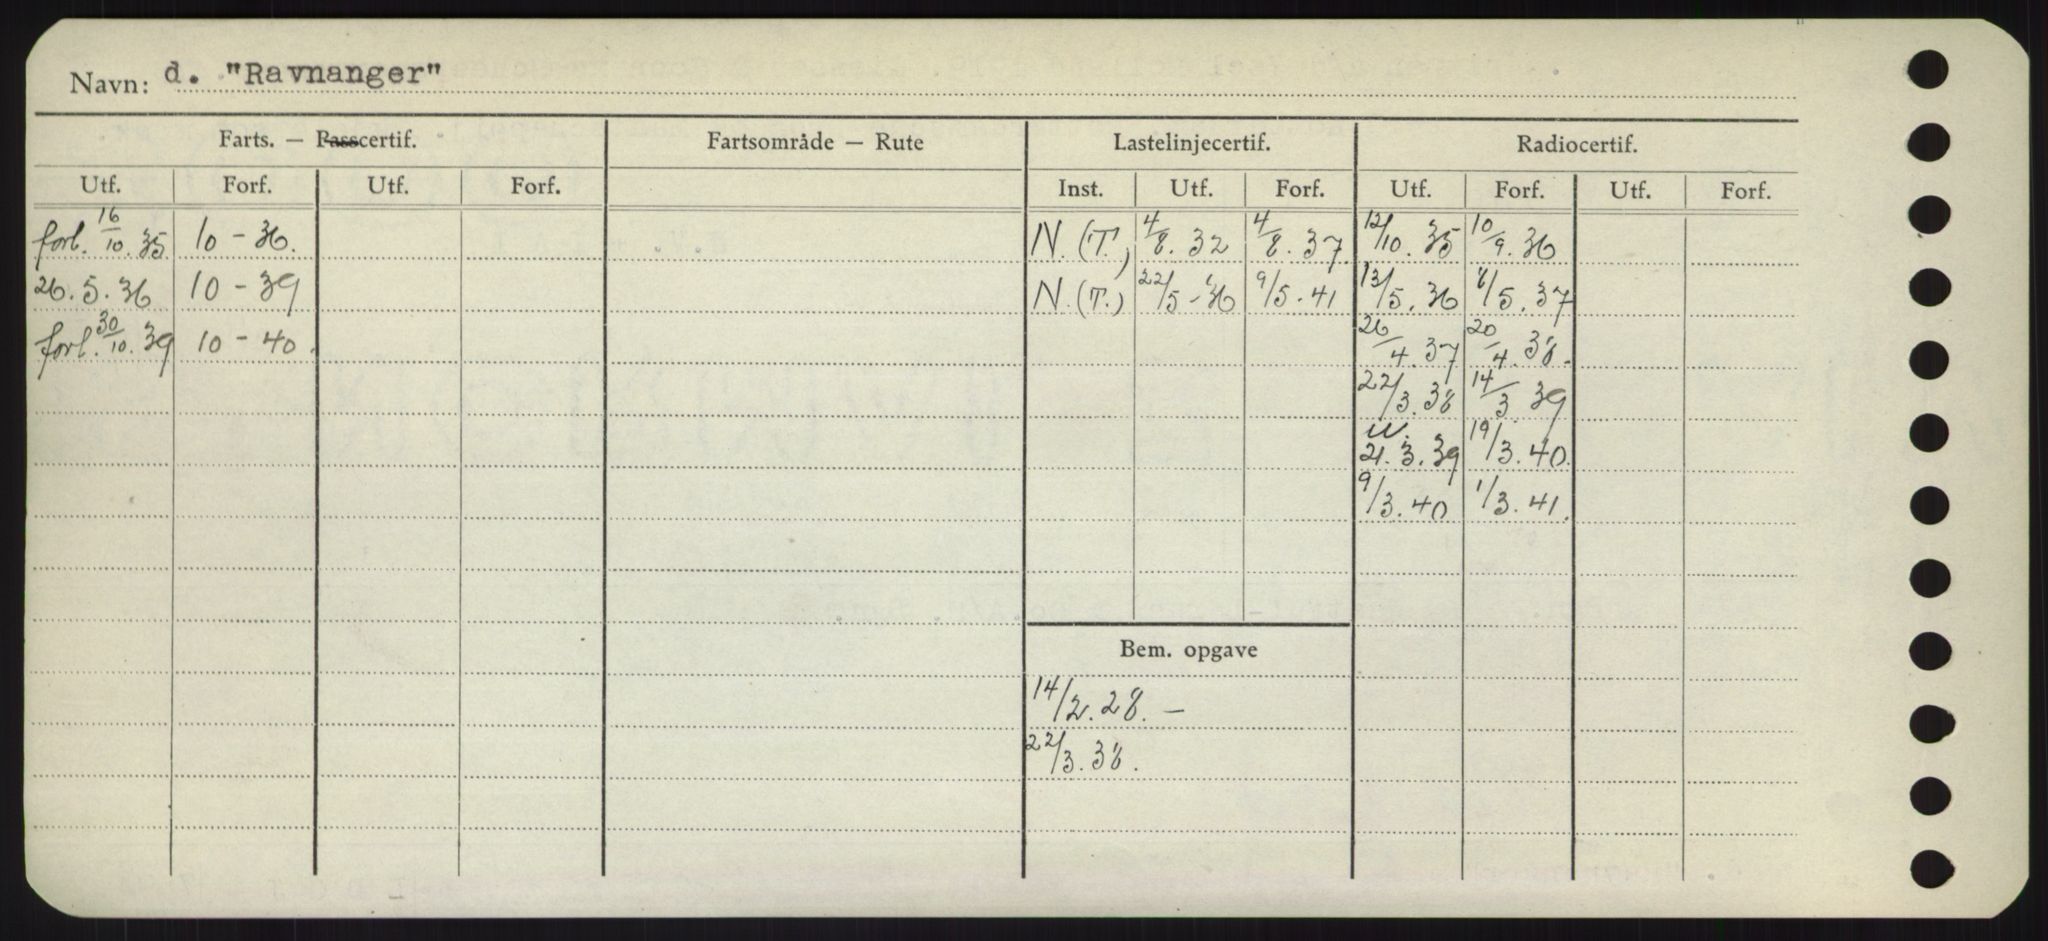 Navn: d. "Ravnanger"
Farts. — Passcertif. Fartsområde — Rute Lastelinjecertif. Radiocertif.
Utf. Forf. Utf. Forf. Inst. Utf. Forf. Utf. Forf. Utf. Forf.
forl. 16/10.35 10 - 36. N. (T.) 4/8. 32 4/8. 37 12/10. 35 10/9. 36
26.5.36 10 - 39 N. (T.) 22/5 - 36 9/5 - 41 13/5. 36 8/5. 37
forl. 30/10. 39 10 - 40. 26/4. 37 20/4. 38.
22/3. 38 14/3 39
21. 3. 39 19/3. 40.
9/3. 40 1/3. 41.
Bem. opgave
14/2. 28. —
22/3. 38.